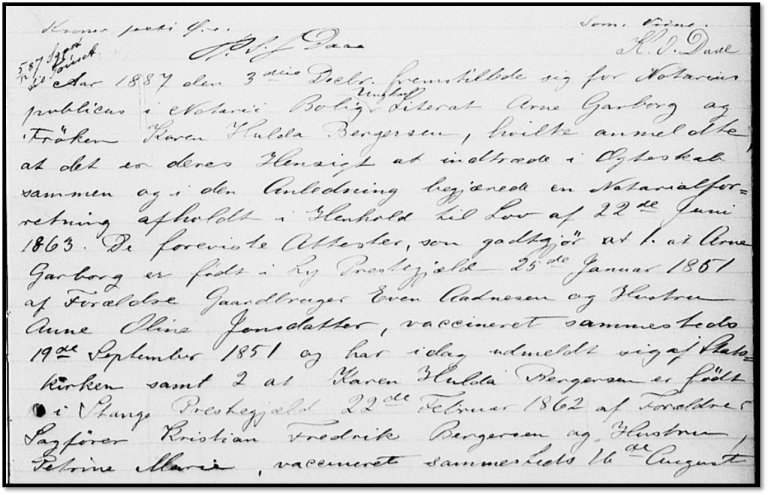 Kroner sexti Øre. Som Vidne.
P. S. J. Daae K. J. Daae
587 Sport.
Aar 1887 den 3 die Decbr. fremstillede sig for Notarius
publicus i Notarii Bolig Ungkarl Literat Arne Garborg og
Frøken Karen Hulda Bergersen, hvilke anmeldte,
at det er deres Hensigt at indtræde i Ægteskab
sammen og i den Anledning begjærede en Notarialfor=
retning afholdt i Henhold til Lov af 22 de Juni
1863. De foreviste Attester, som godtgjör at 1. at Arne
Garborg er født i Ly Prestegjæld 25 de Januar 1851
af Forældre Gaardbruger Even Aadnesen og Hustru
Anne Oline Jonsdatter, vaccineret sammesteds
19 de September 1851 og har idag udmeldt sig af Stats-
kirken samt 2 at Karen Hulda Bergersen er født
i Stange Prestegjæld 22 de Februar 1862 af Forældre
Sagfører Kristian Fredrik Bergersen og Hustru,
Petrine Marie, vaccineret sammesteds 16 de August